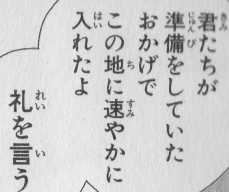 君たちが
準備をしていた
おかげで
この地に速やかに
入れたよ
礼を言う